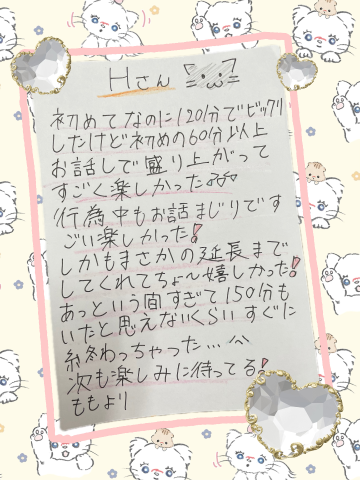 Hさん
初めてなのに120分でビックリ
したけど初めの60分以上
お話しで盛り上がって
すごく楽しかった
行為中もお話まじりです
ごい楽しかった!
しかもまさかの延長まで
してくれてちょ〜嬉しかった!
あっという間すぎて150分も
いたと思えないくらいすぐに
終わっちゃった...
次も楽しみに待ってる!
ももより